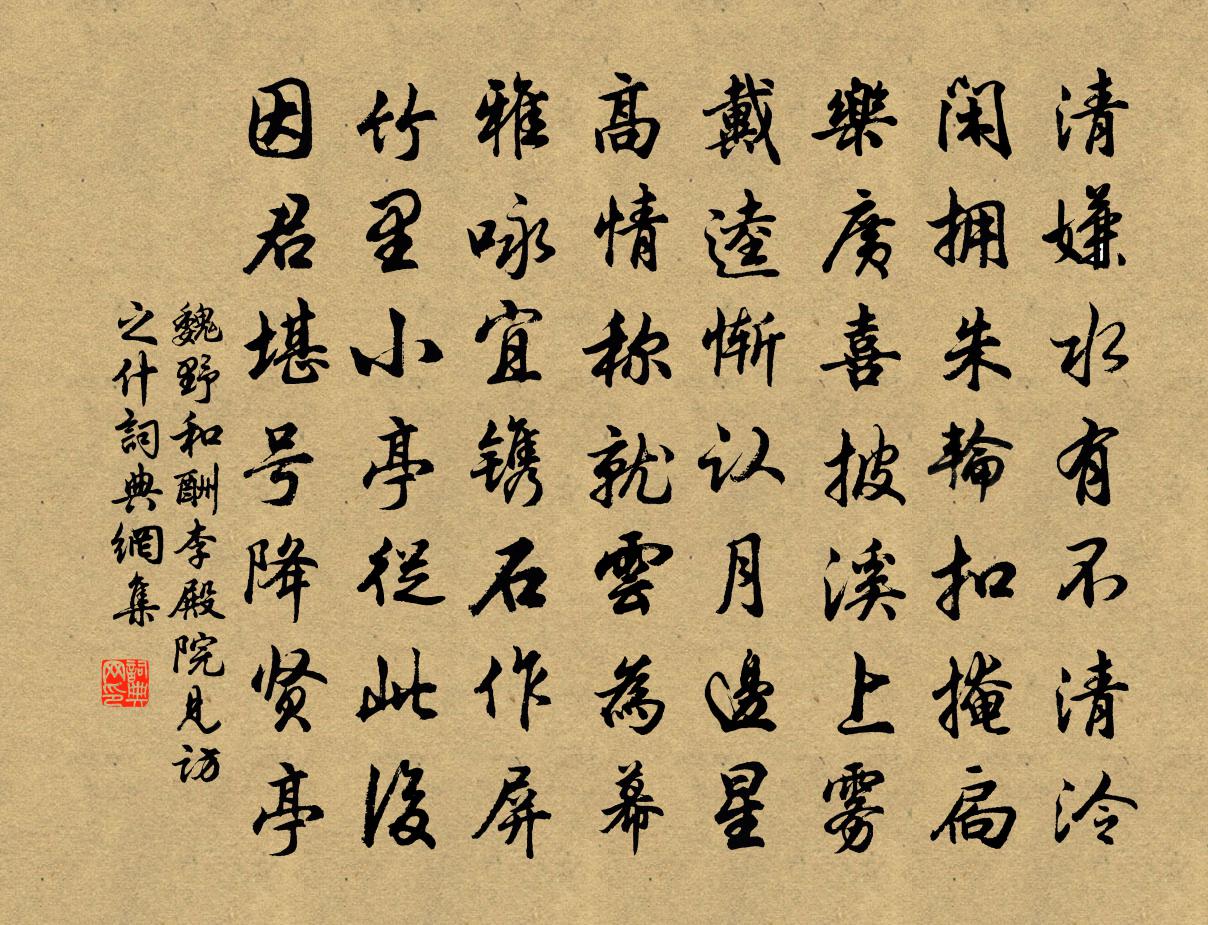 清嫌水有不清泠
闲拥朱輪扣掩扃
樂廣喜披溪上雾
戴逵惭认月邊星
高情称就雲為幕
雅咏宜镌石作屏
竹里小亭從此後
因君堪号降贤亭
魏野和酬李殿院見访
之什詞典網集
詞典网印